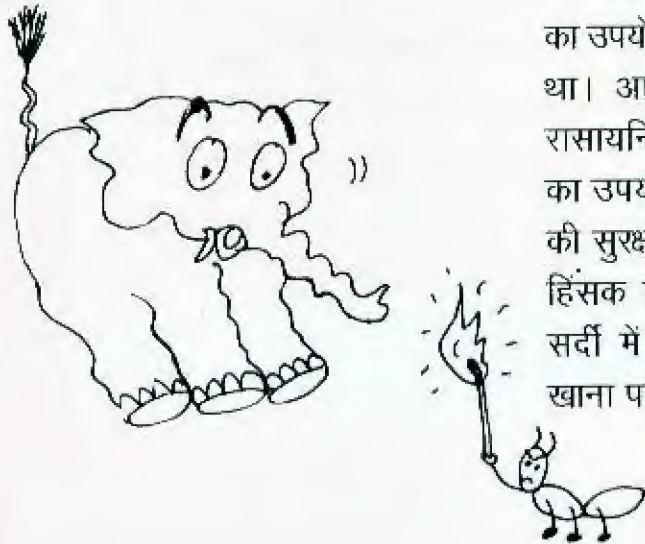 का उपयो
था। आ
रासायनि
का उपय
की सुरक्ष
हिंसक
सर्दी में
खाना प